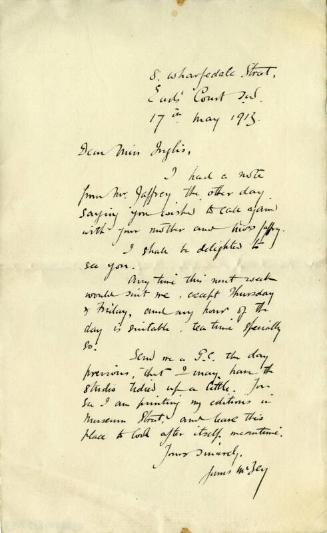 8. Wharfedale Street,
Earls Court S.W.
17th May 1913.
Dear Miss Inglis,
I had a note
from Mr. Jaffrey the other day
saying you wished to call again
with your mother and
I shall be delighted to
see you.
Any time this next week
would suit me, except Thursday
& Friday, and any hour of the
day is suitable, tea time specially
so.
Send me a P.C. the day
previous, that I may have the
studio tidied up a little. For
I am printing my editions in
Museum Street, and leave this
place to look after itself, meantime.
Yours sincerely,
James McBey